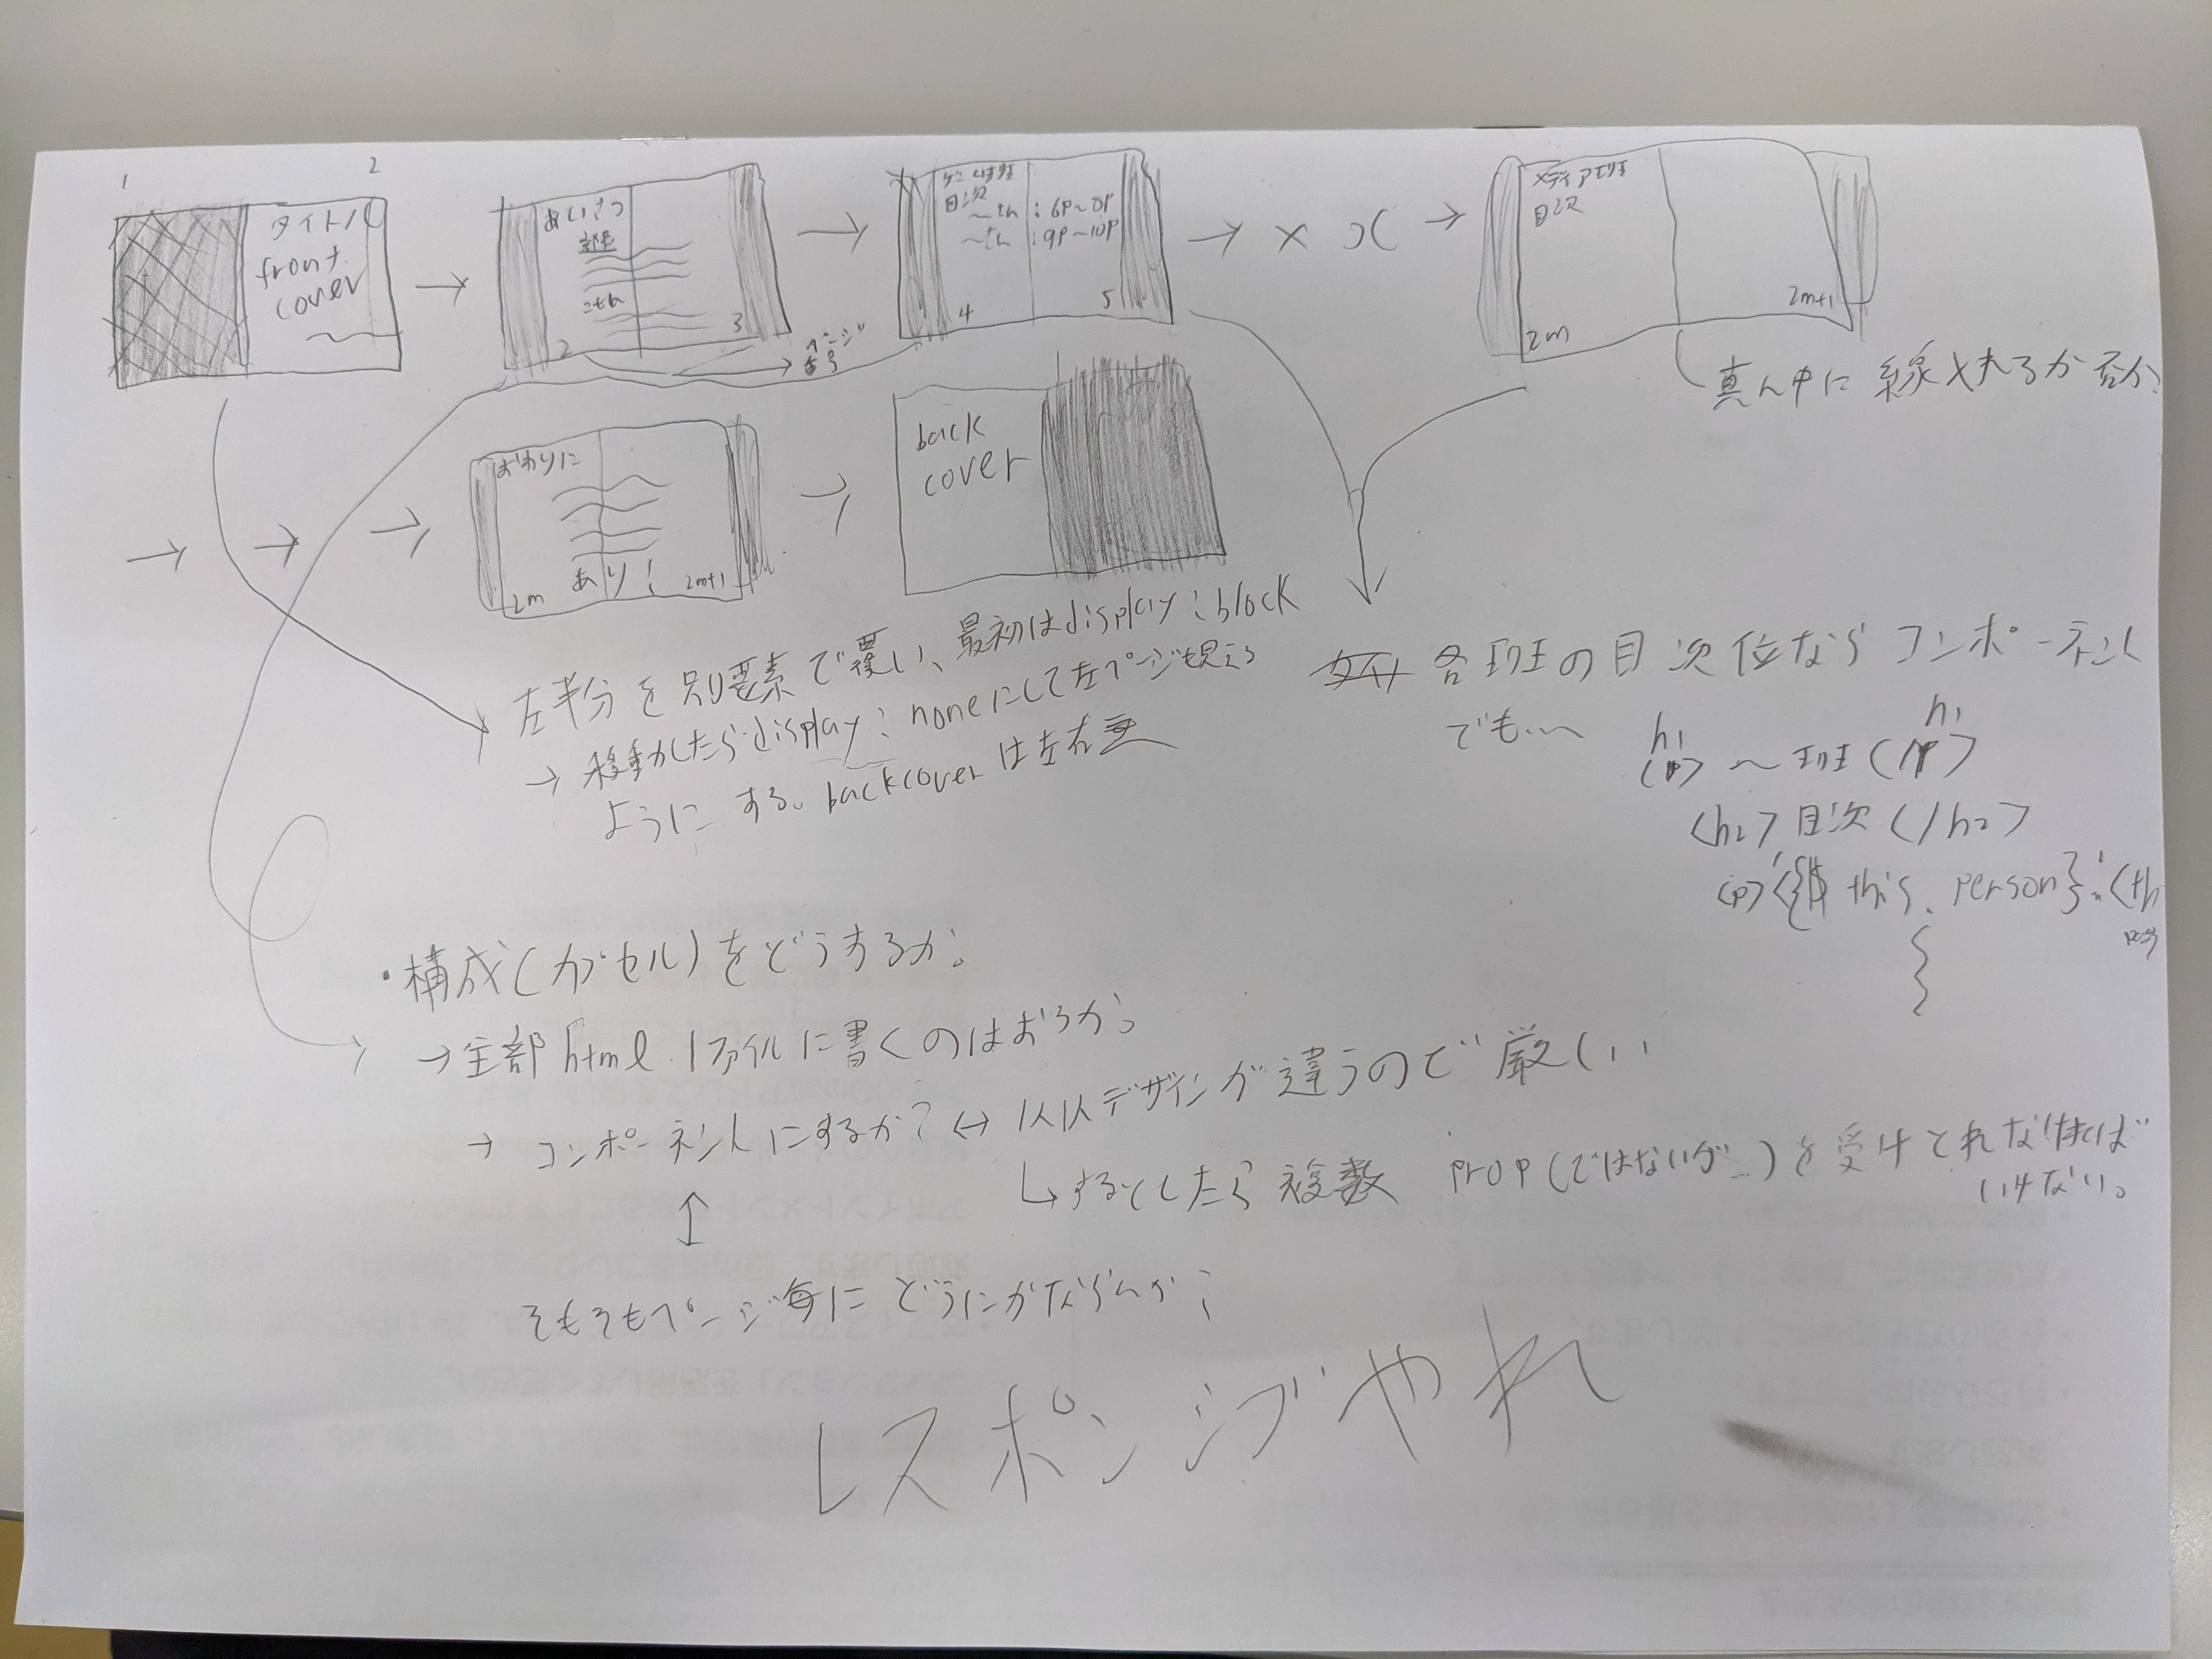 1
2
タイトル
front
cover
あいさつ
部長
2
3
ページ
番号
目次
〜たん : 6P〜8P
〜たん : 9P〜10P
4
5
× x
メディア班
目次
2m
2m+1
真ん中に線入れるか否か?
おわりに
あり!
2m
2m+1
back
cover
左半分を別要素で覆い、最初はdisplay:block
→ 移動したらdisplay:noneにして左ページも見える
ようにする。backcoverは左右逆
各班の目次位ならコンポーネント
でも…〜
<h1>〜班</h1>
<h2>目次</h2>
this.person}
・構成(カプセル)をどうするか。
→全部html 1ファイルに書くのはおろか。
→ コンポーネントにするか? ↔ 1人1人デザインが違うので厳しい
↳するとしたら複数 prop(ではないが…)を受けとれなければ
いけない。
そもそもページ毎にどうにかならんか?
レスポンシブやれ